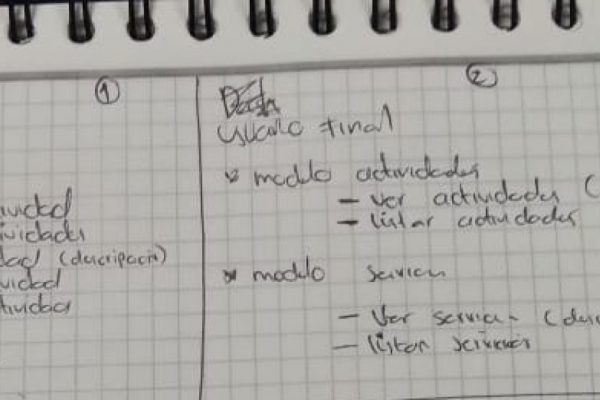 ①
ividad
ividades
dad (descripación)
vidad
tividad
②
Usuario final
modulo actividades
- ver actividades (
- listar actividades
modulo servicios
- Ver servicio (des
- listar servicios